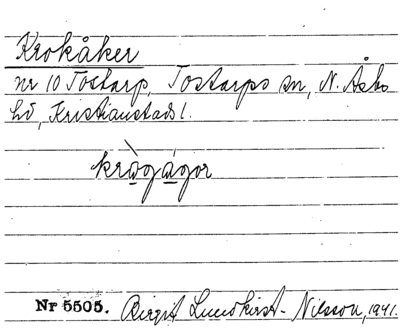 Krokåker
nr 10 Tostarp, Tostarps sn, N. Åsbo
hd, Kristianstads l.
krògágor
Nr 5505. Birgit Lundkvist-Nilsson, 1941.